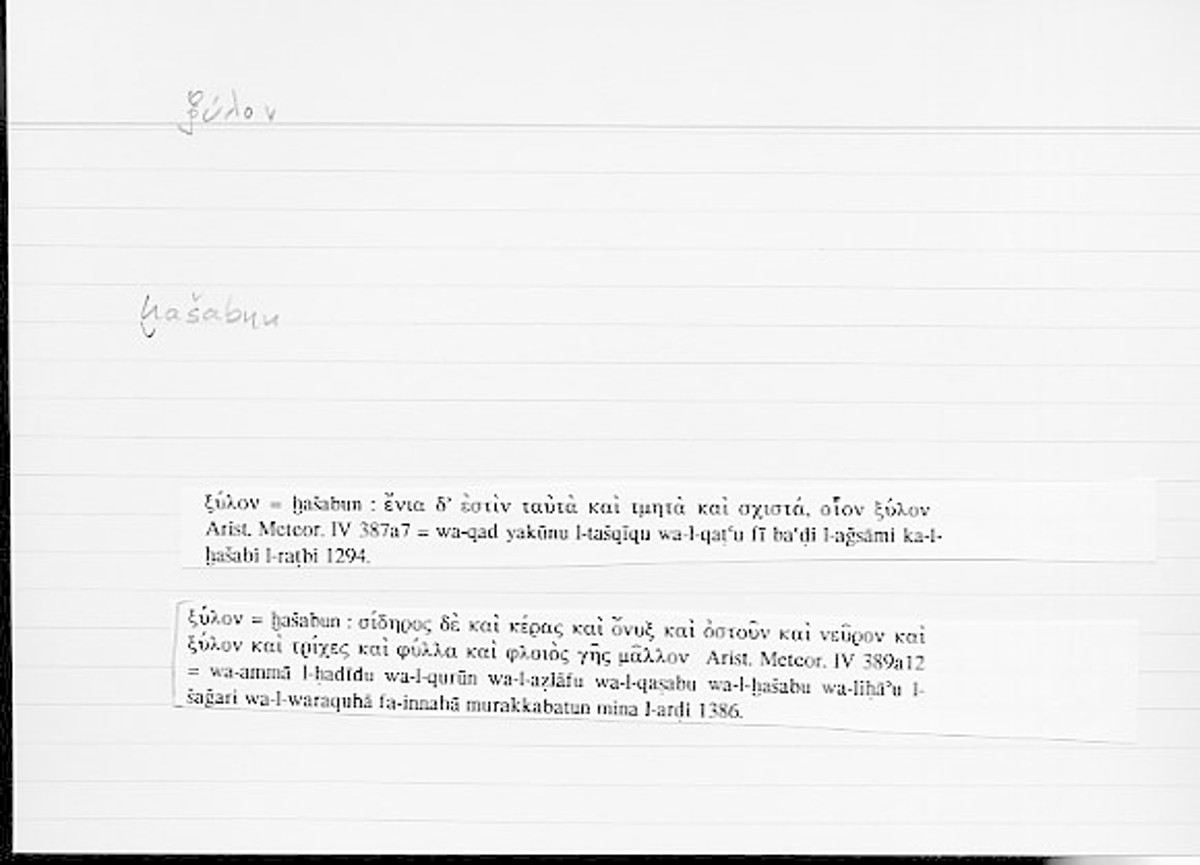 ξύλον
ḫašabun
ξύλον = ḫašabun : ἔνια δ' ἐστὶν ταὐτὰ καὶ τμητὰ καὶ σχιστά, οἷον ξύλον
Arist. Meteor. IV 387a7 = wa-qad yakūnu l-tašqīqu wa-l-qaṭʿu fī baʿḍi l-aǧsāmi ka-l-
ḫašabi l-raṭbi 1294.
ξύλον = ḫašabun : σίδηρος δὲ καὶ κέρας καὶ ὄνυξ καὶ ὀστοῦν καὶ νεῦρον καὶ
ξύλον καὶ τρίχες καὶ φύλλα καὶ φλοιὸς γῆς μᾶλλον Arist. Meteor. IV 389a12
= wa-ammā l-ḥadīdu wa-l-qurūn wa-l-aẓlāfu wa-l-qaṣabu wa-l-ḫašabu wa-liḥāʾu l-
šaǧari wa-l-waraquhā fa-innahā murakkabatun mina l-arḍi 1386.